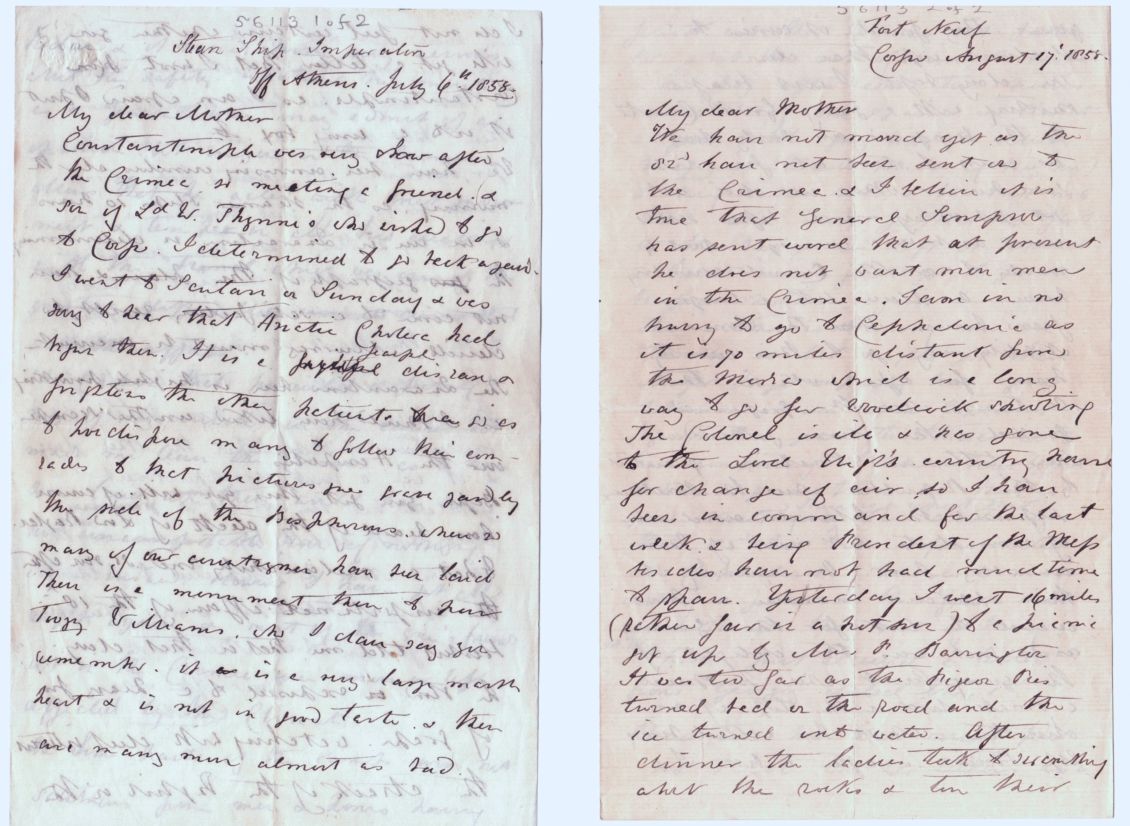 56113 1 of 2
Steam Ship. Imperator
Off Athens. July 6th 1855.
My dear Mother
Constantinople was very slow after
the Crimea. so meeting a friend. a
son of Ld W. Thynne's who wished to go
to Corfu. I determined to go back again.
I went to Scutari on Sunday & was
sorry to hear, that Asiatic Cholera had
begun there. It is a fearful disease &
frightens the other patients so as
to predispose many to follow their com-
rades to that picturesque grave yard by
the side of the Bosphorus, where so
many of our countrymen have been laid
There is a monument there to poor
Williams. who I dare say you
remember. it is a very large marble
heart & is not in good taste. & there
are many more almost as bad.
56113 2 of 2
Fort Neuf
Corfu August 17. 1855.
My dear Mother
We have not moved yet as the
82d have not been sent on to
the Crimea. & I believe it is
true that General Simpson
has sent word that at present
he does not want more men
in the Crimea. I am in no
hurry to go to Cephalonia as
it is 70 miles distant from
the Morea which is a long
way to go for Woodcock shooting
The Colonel is ill & has gone
to the Lord High's country house
for change of air so I have
been in command for the last
week. & being President of the Mess
besides have not had much time
to spare. Yesterday I went 16 miles
(rather far in a hot sun) to a picnic
got up by Mrs P. Barrington
It was too far as the Pigeon Pies
turned bad on the road and the
ice turned into water. After
dinner the ladies took to scrambling
about the rocks & tore their